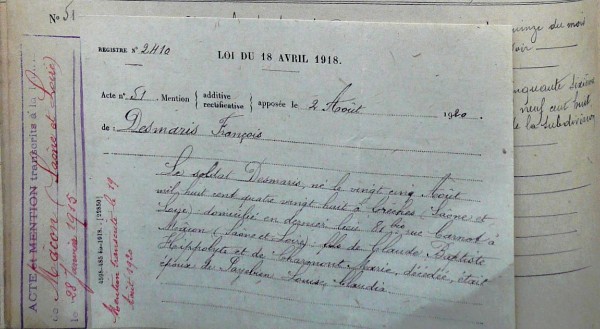 No 51
REGISTRE No 2410
LOI DU 18 AVRIL 1918.
Acte no. 51 Mention { additive rectificative } apposée le 2 Août 1920.
de: Desmaris François
Le soldat Desmaris, né le vingt cinq Août
mil huit cent quatre vingt huit à Crèches (Saône et
Loire) domicilié en dernier lieu 86 bis rue Carnot à
Mâcon (Saône et Loire) fils de Claude Baptiste
Hippolyte et de Charmont Marie, décédée, était
époux de Louise, Claudia
ACTE et MENTION transcrits à la
Mâcon (Saône et Loire)
le 28 Janvier 1915
Mention transcrite le 19
Août 1920
quinze du mois
cinquante sixième
neuf cent huit
de la subdivision